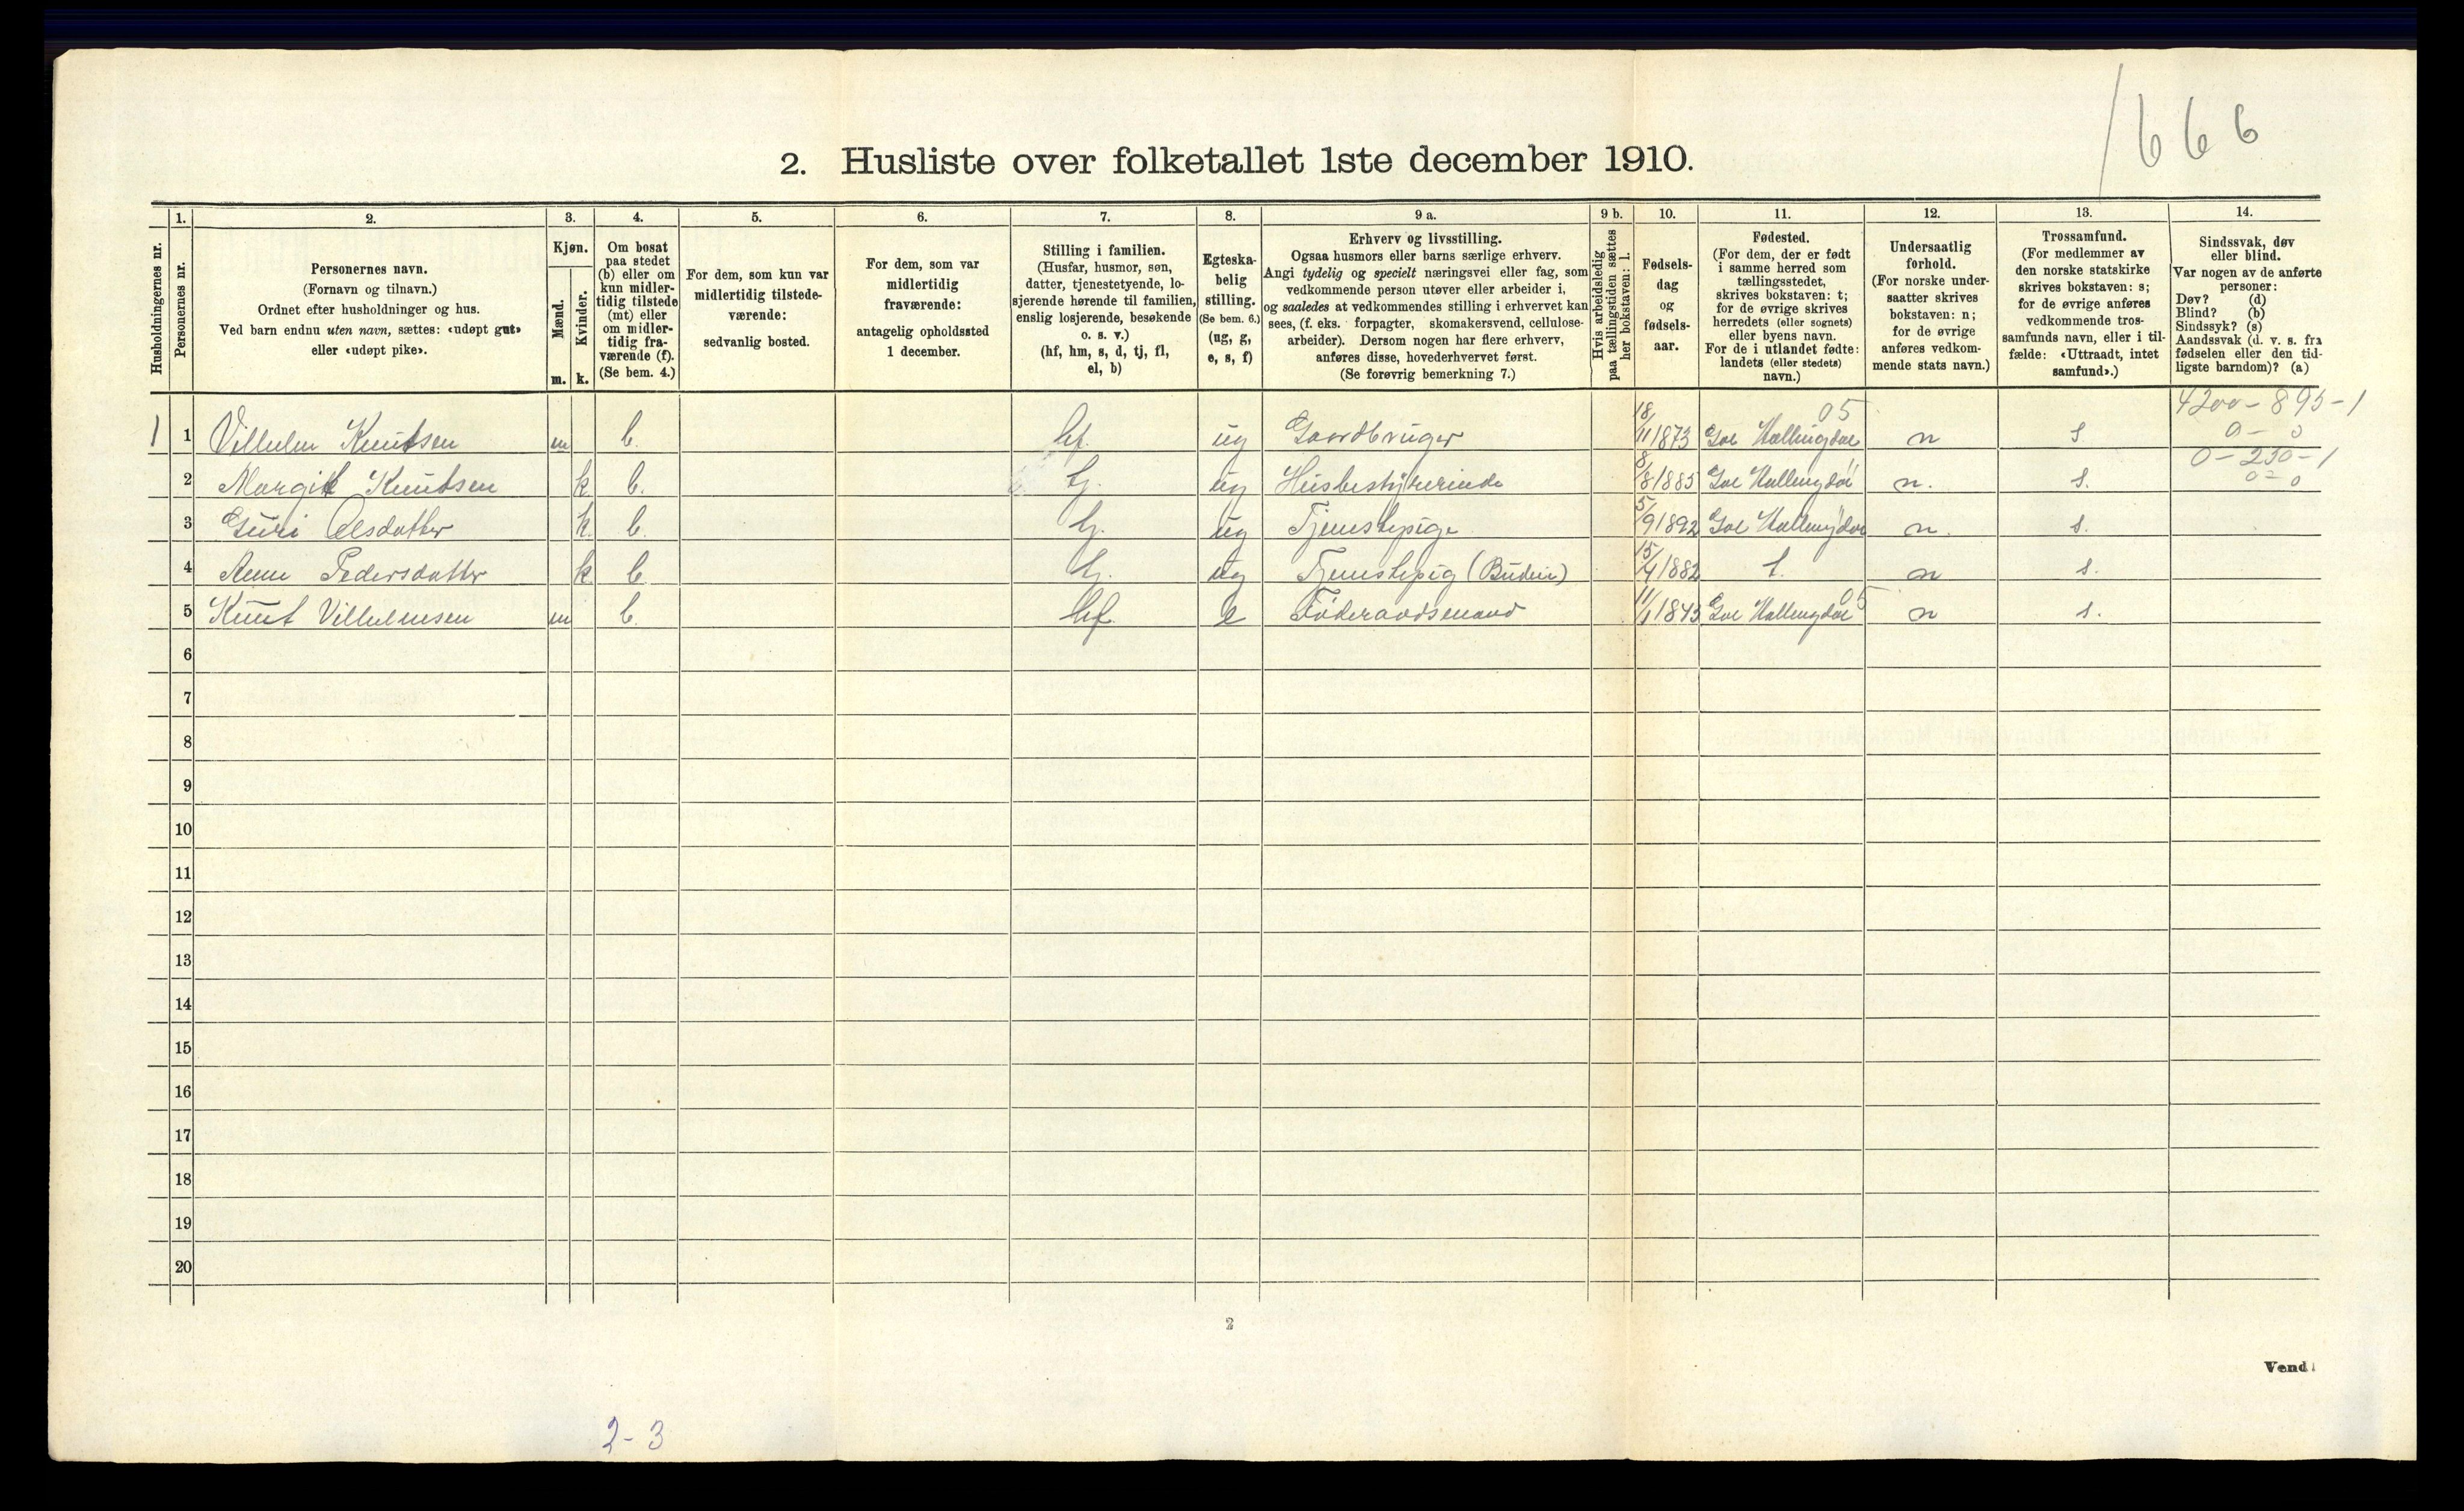 1666
2. Husliste over folketallet 1ste december 1910.
Husholdningernes nr.
1.
Personernes nr.
2.
Personernes navn.
(Fornavn og tilnavn.)
Ordnet efter husholdninger og hus.
Ved barn endnu uten navn, sættes: «udøpt gut»
eller «udøpt pike».
3.
Kjøn.
Mænd.
m.
Kvinder.
k.
4.
Om bosat
paa stedet
(b) eller om
kun midler-
tidig tilstede
(mt) eller
om midler-
tidig fra-
værende (f).
(Se bem. 4.)
5.
For dem, som kun var
midlertidig tilstede-
værende:
sedvanlig bosted.
6.
For dem, som var
midlertidig
fraværende:
antagelig opholdssted
1 december.
7.
Stilling i familien.
(Husfar, husmor, søn,
datter, tjenestetyende, lo-
sjerende hørende til familien,
enslig losjerende, besøkende
o. s. v.)
(hf, hm, s, d, tj, fl,
el, b)
8.
Egteska-
belig
stilling.
(Se bem. 6.)
(ug, g,
e, s, f)
9 a.
Erhverv og livsstilling.
Ogsaa husmors eller barns særlige erhverv.
Angi tydelig og specielt næringsvei eller fag, som
vedkommende person utøver eller arbeider i,
og saaledes at vedkommendes stilling i erhvervet kan
sees, (f. eks. forpagter, skomakersvend, cellulose-
arbeider). Dersom nogen har flere erhverv,
anføres disse, hovederhvervet først.
(Se forøvrig bemerkning 7.)
9 b.
Hvis arbeidsledig
paa tællingstiden sættes
her bokstaven: l.
10.
Fødsels-
dag
og
fødsels-
aar.
11.
Fødested.
(For dem, der er født
i samme herred som
tællingsstedet,
skrives bokstaven: t;
for de øvrige skrives
herredets (eller sognets)
eller byens navn.
For de i utlandet fødte:
landets (eller stedets)
navn.)
12.
Undersaatlig
forhold.
(For norske under-
saatter skrives
bokstaven: n;
for de øvrige
anføres vedkom-
mende stats navn.)
13.
Trossamfund.
(For medlemmer av
den norske statskirke
skrives bokstaven: s;
for de øvrige anføres
vedkommende tros-
samfunds navn, eller i til-
fælde: «Uttraadt, intet
samfund».)
14.
Sindssvak, døv
eller blind.
Var nogen av de anførte
personer:
Døv? (d)
Blind? (b)
Sindssyk? (s)
Aandssvak (d. v. s. fra
fødselen eller den tid-
ligste barndom)? (a)
05 4200-895-1
1 1 Vilhelm Knutsen m b. hf. ug Gaardbruger 18/11 1873 Gol Hallingdal n s 0-0
0-250-1
2 Margit Knutsen k b. tj. ug Husbestyrerinde 8/8 1885 Gol Hallingdal n. s. 0-0
3 Guri Olsdatter k. b. tj. ug Tjenstepige 5/9 1892 Gol Hallingdal n. s.
4 Anne Pedersdatter k b tj. ug Tjenstepig (Budeie) 15/4 1882 t. n s.
05
5 Knut Vilhelmsen m b. hf. e Føderaadsmand 11/1 1843 Gol Hallingdal n s.
6
7
8
9
10
11
12
13
14
15
16
17
18
19
20
2
Vend!
2-3